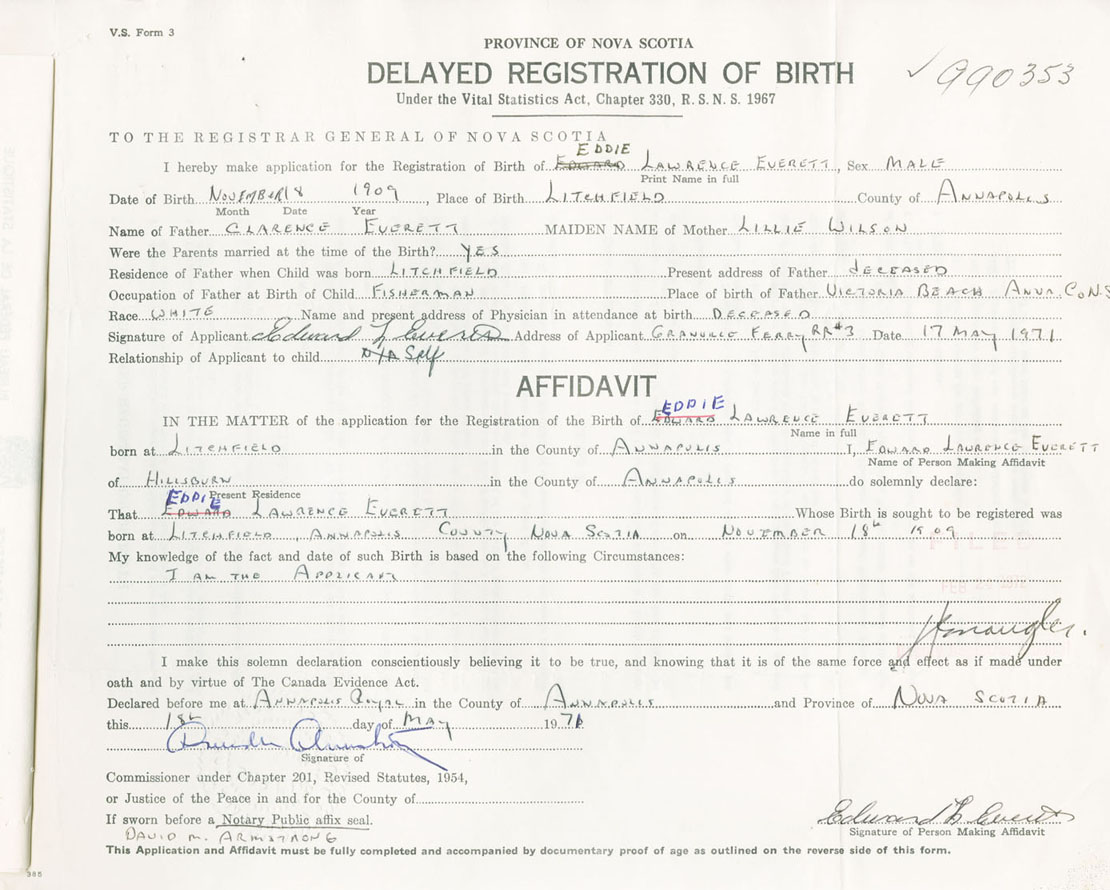 V.S. Form 3
PROVINCE OF NOVA SCOTIA
DELAYED REGISTRATION OF BIRTH
✓990353
Under the Vital Statistics Act, Chapter 330, R.S.N.S. 1967
TO THE REGISTRAR GENERAL OF NOVA SCOTIA
EDDIE
I hereby make application for the Registration of Birth of EDWARD LAWRENCE EVERETT, Sex MALE
Print Name in full
Date of Birth NOVEMBER 18 1909, Place of Birth LITCHFIELD County of ANNAPOLIS
Month Date Year
Name of Father CLARENCE EVERETT MAIDEN NAME of Mother LILLIE WILSON
Were the Parents married at the time of the Birth? YES
Residence of Father when Child was born LITCHFIELD Present address of Father DECEASED
Occupation of Father at Birth of Child FISHERMAN Place of birth of Father VICTORIA BEACH ANNA. CO. N.S
Race WHITE Name and present address of Physician in attendance at birth DECEASED
Signature of Applicant Edward L Everett Address of Applicant GRANVILLE FERRY RR#3 Date 17 MAY 1971
Relationship of Applicant to child N/A Self
AFFIDAVIT
EDDIE
IN THE MATTER of the application for the Registration of the Birth of EDWARD LAWRENCE EVERETT
Name in full
born at LITCHFIELD in the County of ANNAPOLIS I, EDWARD LAWRENCE EVERETT
Name of Person Making Affidavit
of HILLSBURN in the County of ANNAPOLIS do solemnly declare:
EDDIE Present Residence
That EDWARD LAWRENCE EVERETT Whose Birth is sought to be registered was
born at LITCHFIELD, ANNAPOLIS COUNTY NOVA SCOTIA on NOVEMBER 18th 1909
My knowledge of the fact and date of such Birth is based on the following Circumstances:
I AM THE APPLICANT
I make this solemn declaration conscientiously believing it to be true, and knowing that it is of the same force and effect as if made under
oath and by virtue of The Canada Evidence Act.
Declared before me at ANNAPOLIS ROYAL in the County of ANNAPOLIS and Province of NOVA SCOTIA
this 18th day of MAY 1971
Signature of
Commissioner under Chapter 201, Revised Statutes, 1954,
or Justice of the Peace in and for the County of
If sworn before a Notary Public affix seal.
DAVID M. ARMSTRONG
Edward L Everett
Signature of Person Making Affidavit
This Application and Affidavit must be fully completed and accompanied by documentary proof of age as outlined on the reverse side of this form.
385